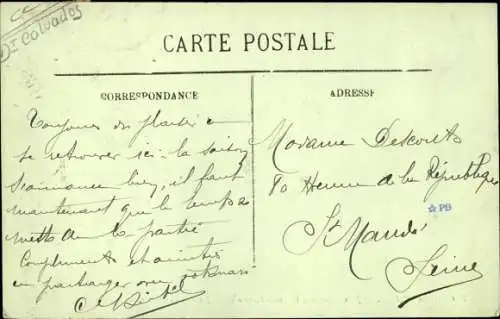 Dt Calvados
CARTE POSTALE
CORRESPONDANCE
ADRESSE
Toujours du plaisir à
se retrouver ici. la saison
s'annonce bien, il faut
maintenant que le temps se
mette de la partie
Compliments et amitiés
en partager avec
Madame Descouts
80 Avenue de la République
St Mandé
Seine
☆PB